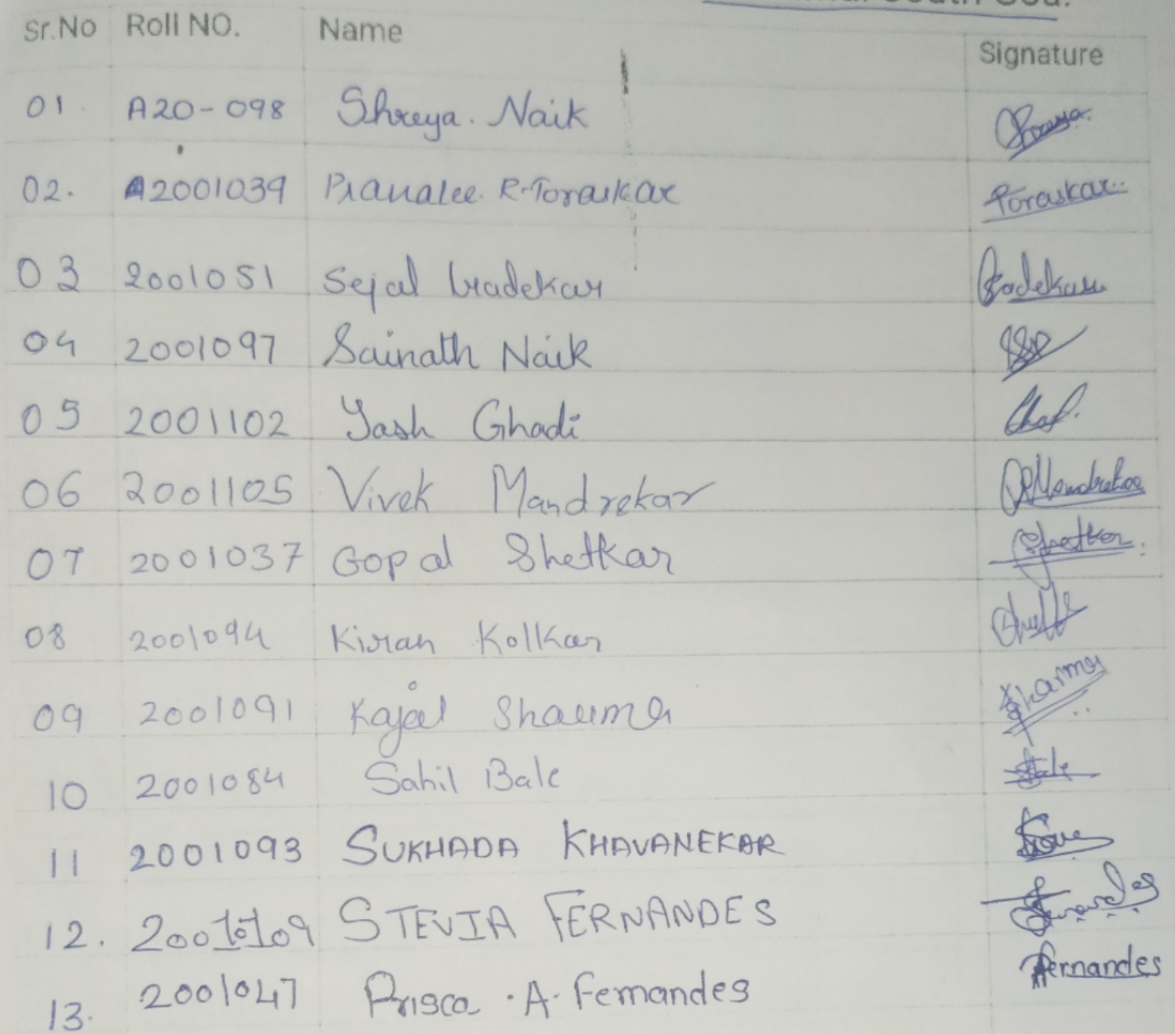 Sr.No Roll NO. Name Signature
01. A20-098 Shreya. Naik Shreya
02. A2001039 Pranalee. R. Toraskar Toraskar
03 2001051 Sejal Gadekar Gadekar
04 2001097 Sainath Naik
05 2001102 Yash Ghadi
06 2001105 Vivek Mandrekar Mandrekar
07 2001037 Gopal Shetkar Shetkar
08 2001094 Kiran Kolkar
09 2001091 Kajal Sharma Sharma
10 2001084 Sahil Bale Bale
11 2001093 SUKHADA KHAVANEKAR
12. STEVIA FERNANDES Fernandes
13. 2001047 Prisca . A. Fernandes Fernandes